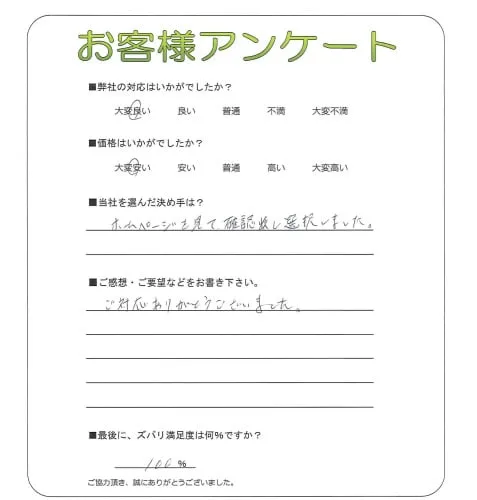 お客様アンケート
■弊社の対応はいかがでしたか？
大変良い　良い　普通　不満　大変不満
■価格はいかがでしたか？
大変安い　安い　普通　高い　大変高い
■当社を選んだ決め手は？
ホームページを見て確認致し選択しました。
■ご感想・ご要望などをお書き下さい。
ご対応ありがとうございました。
■最後に、ズバリ満足度は何%ですか？
100 %
ご協力頂き、誠にありがとうございました。